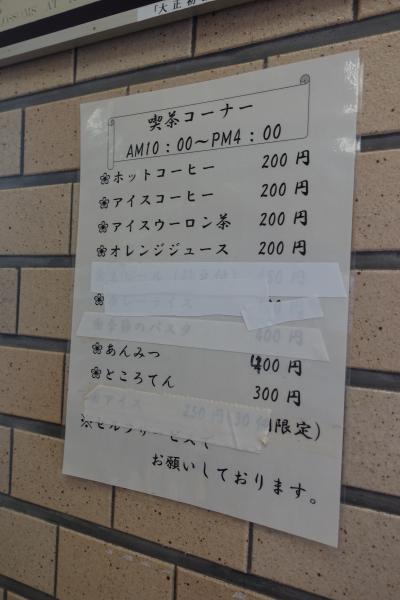 「大正初
喫茶コーナー
AM10：00～PM4：00
❀ホットコーヒー 200円
❀アイスコーヒー 200円
❀アイスウーロン茶 200円
❀オレンジジュース 200円
のパスタ 400円
❀あんみつ 400円
❀ところてん 300円
❀アイス 250円(30個限定)
※セルフサービスで
お願いしております。